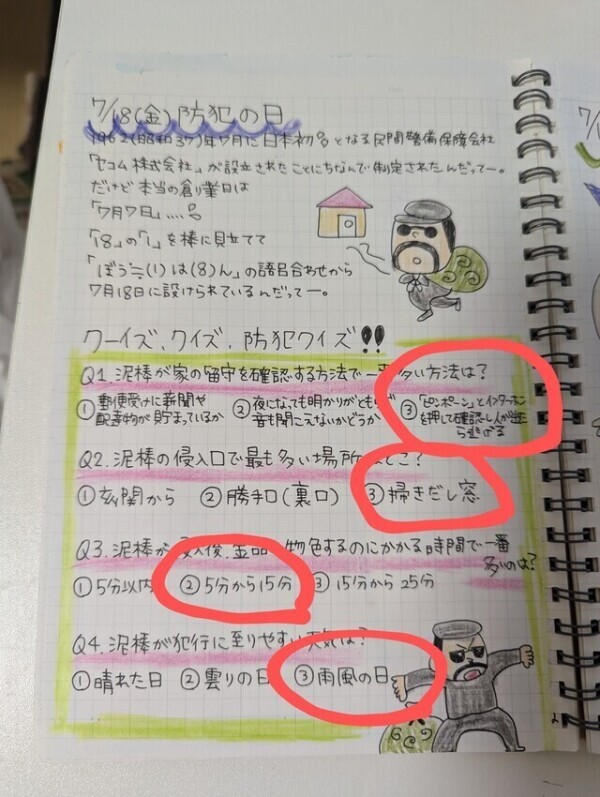 7/18(金)防犯の日
1962(昭和37)年7月に日本初となる民間警備保障会社
「セコム株式会社」が設立されたことにちなんで制定されたんだってー。
だけど本当の創業日は
「7月7日」....
「18」の「1」を棒に見立てて
「ぼう(1)は(8)ん」の語呂合わせから
7月18日に設けられているんだってー。
クーイズ、クイズ、防犯クイズ!!
Q1.泥棒が家の留守を確認する方法で一 多い方法は?
①郵便受けに新聞や
配達物が貯まっているか
②夜になっても明かりがともらず
音も聞こえないかどうか
③「ピンポーン」とインターホン
を押して確認し人が出た
ら逃げる
Q2.泥棒の侵入口で最も多い場所 どこ?
①玄関から ②勝手口(裏口) ③掃きだし窓
Q3.泥棒が 入後、金品 物色するのにかかる時間で一番
多いのは?
①5分以内 ②5分から15分 ③15分から25分
Q4.泥棒が犯行に至りやすい天気は?
①晴れた日 ②曇りの日 ③雨風の日